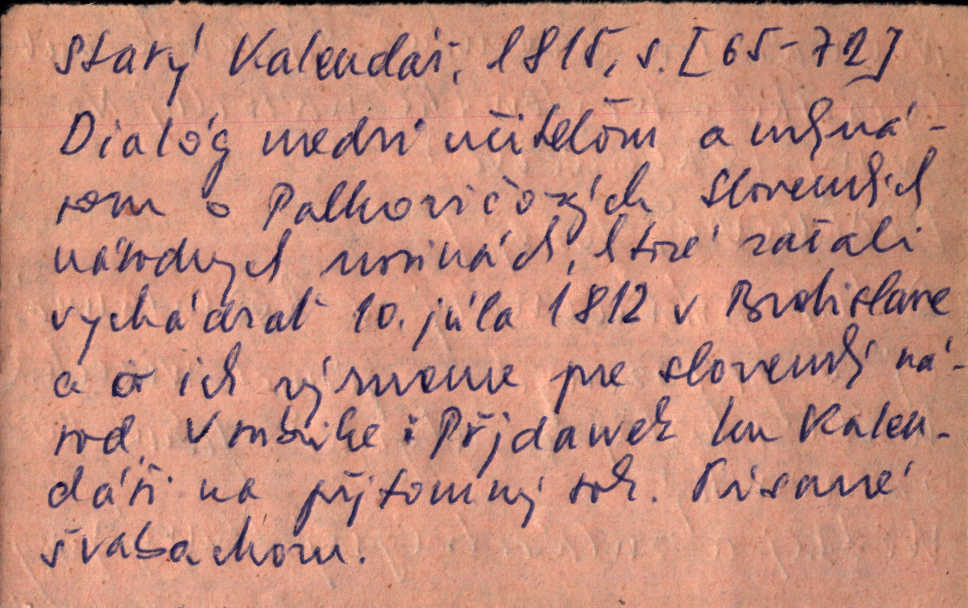 Starý Kalendář, 1815, s. [65-72]
Dialóg medzi učiteľom a mlyná-
rom o Palkovičových Slovenských
národných novinách, ktoré začali
vychádzať 10. júla 1812 v Bratislave
a o ich význame pre slovenský ná-
rod. V rubrike: Přjdawek ku Kalen-
dáři na přjtomný rok. Písané
švabachom.